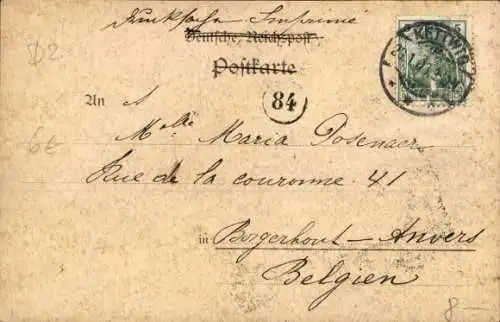 Drucksache Imprimé
D2
Deutsche Reichspost
Postkarte
KETTWIG
84
An
6€
Melle Maria Posenaer
Rue de la couronne 41
in Borgerhout - Anvers
Belgien
8-